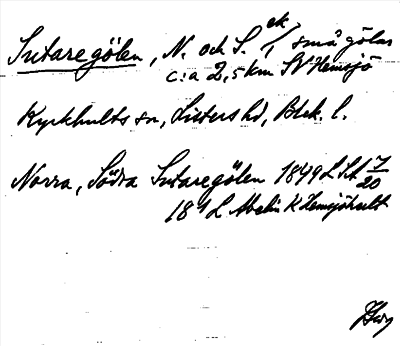 Sutaregölen, N. och S. ek. /, små gölar
c:a 2,5 km SV Hemsjö
Kyrkhults sn, Listers hd, Blek. l.
Norra, Södra Sutaregölen 1849 L St 17/20
18 L Abelin K Hemsjöhult